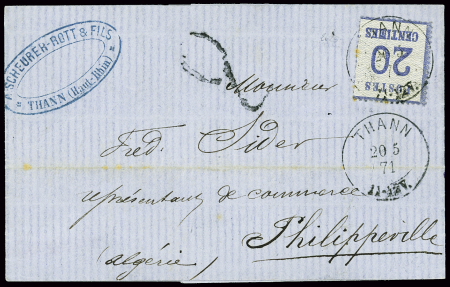 SCHEURER-ROTT & FILS
THANN (Haut-Rhin)
POSTES
20
CENTIMES
THANN
20 5
71
Monsieur
Fréd. Sider
représentant de commerce
Philippeville
(algérie)